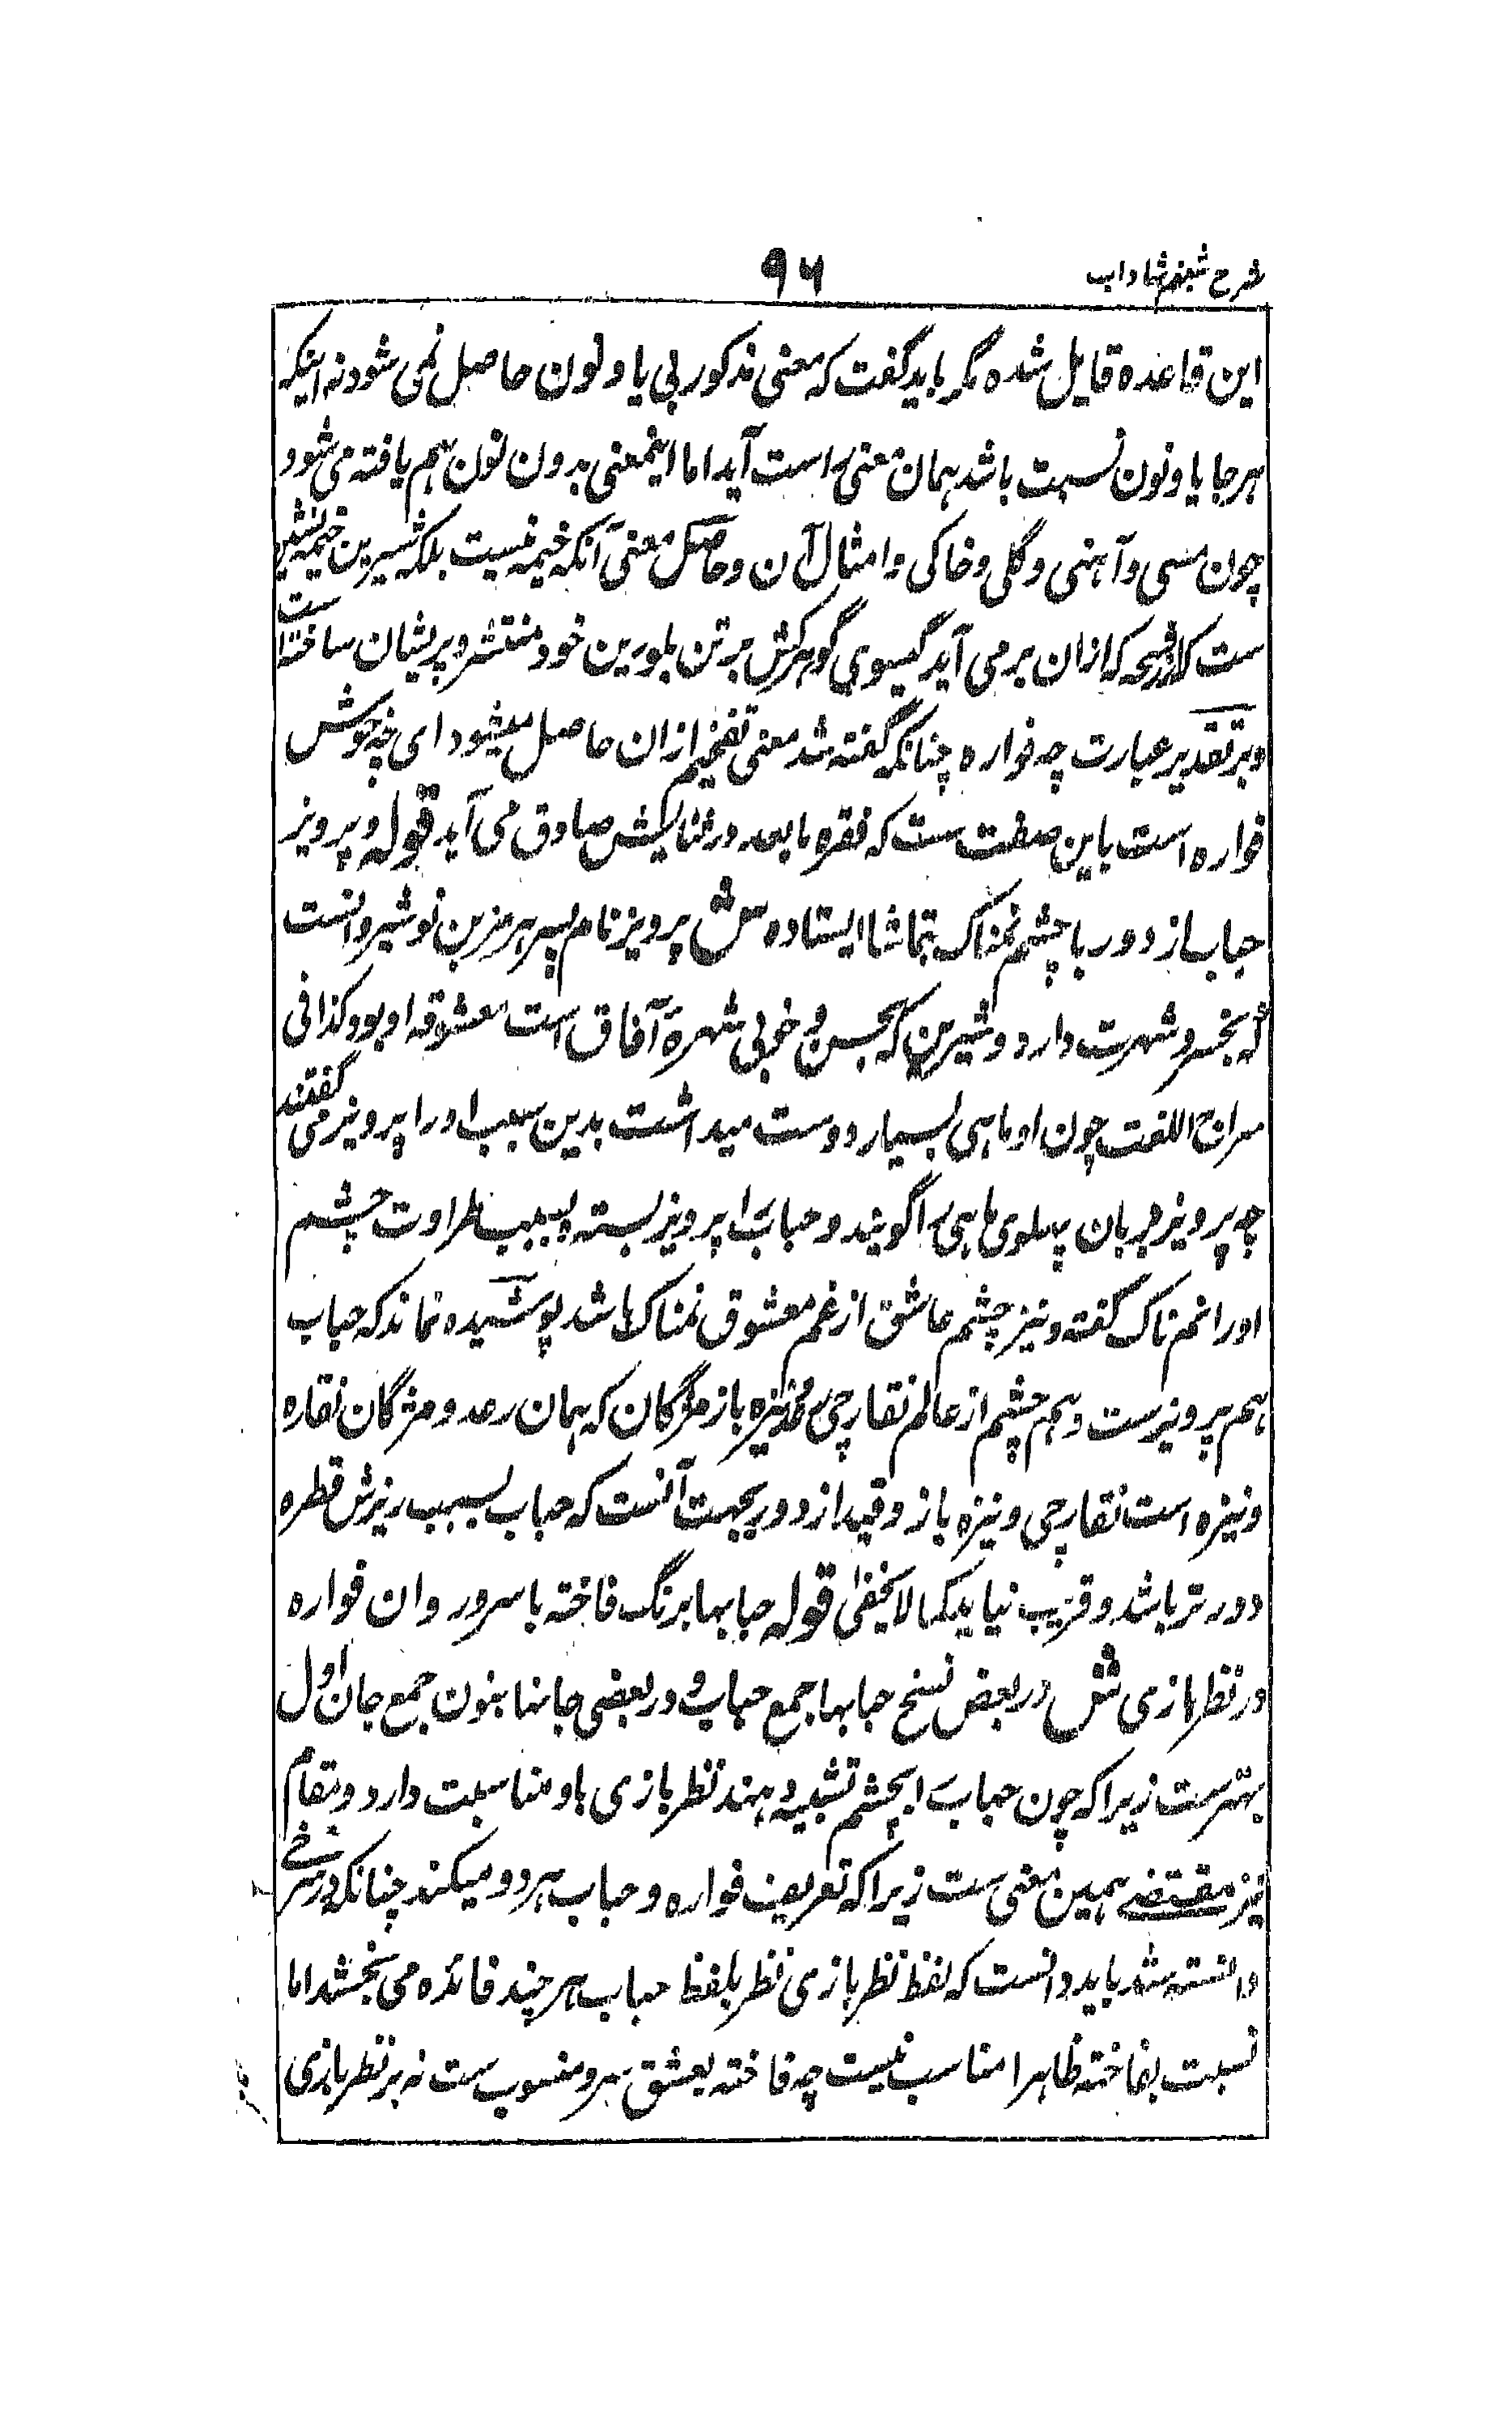 شرح شبنم شاداب
۹۶
این قاعده قایل شده مگر باید گفت که معنی مذکور بی یا و نون حاصل نمی شود نه اینکه
هر جا یا و نون نسبت باشد همان معنی راست آید اما اینمعنی بدون نون هم یافته می شود
چون مسی و آهنی و گلی و خاکی و امثال آن و حاصل معنی آنکه خیمه نیست بلکه شیرین خیمه نشین
ست که از رشحه که ازان بر می آید گیسوی گوهرکش بر تن بلورین خود منتشر و پریشان ساخته است
و بر تقدیر عبارت چه فواره چنانکه گفته شد معنی تفخیم ازان حاصل میشود ای چه خوش
فواره است باین صفت ست که فقره مابعد در ثنایش صادق می آید قوله و پرویز
حباب از دور با چشم نمناک بتماشا ایستاده ش پرویز نام پسر هرمز بن نوشیروانست
که بخسرو شهرت دارد و شیرین که بحسن و خوبی شهرهٔ آفاق است معشوقه او بود کذا فی
سراج اللغت چون او ماهی بسیار دوست میداشت بدین سبب او را پرویز می گفتند
چه پرویز بزبان پهلوی ماهی را گویند و حباب را پرویز بسته بسبب طراوت چشم
اورا نم ناک گفته و نیز چشم عاشق از غم معشوق نمناک باشد پوشیده نماند که حباب
هم پرویزست و هم چشم از عالم نقارچی و نیزه باز مژگان که همان رعد و مژگان نقاره
و نیزه است نقارچی و نیزه باز و قید از دور بجهت آنست که حباب بسبب ریزش قطره
دور تر باشد و قریب نیاید کما لا یخفی قوله حبابها برنگ فاخته با سرور وان فواره
در نظر بازی ش در بعض نسخ حبابها جمع حباب و در بعضی جانها بنون جمع جان اول
بهترست زیرا که چون حباب را بچشم تشبیه دهند نظر بازی باو مناسبت دارد و مقام
نیز مقتضی همین معنی ست زیرا که تعریف فواره و حباب هر دو میکند چنانکه در شرحی
دانسته شد باید دانست که لفظ نظر بازی نظر بلفظ حباب هر چند فائده می بخشد اما
نسبت بفاخته ظاهرا مناسب نیست چه فاخته بعشق سرو منسوب ست نه بر نظر بازی